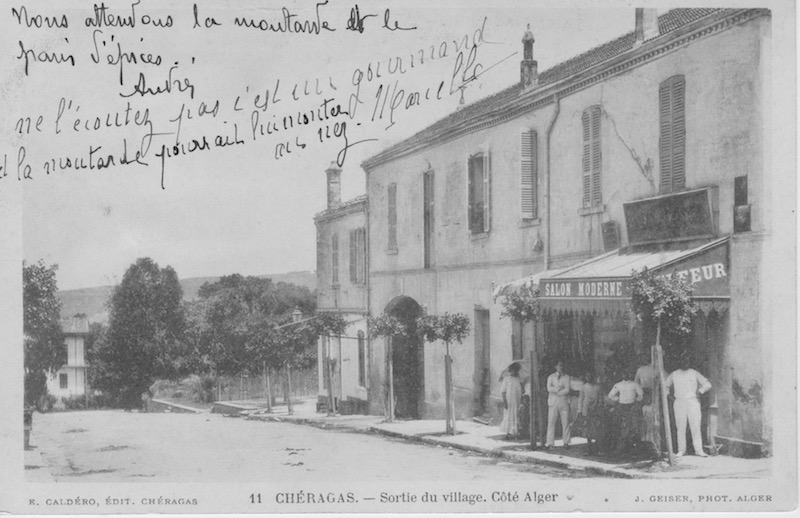 Nous attendons la moutarde et le
pain d'épices.
André
ne l'écoutez pas c'est un gourmand
et la moutarde pourrait lui monter
au nez. Marcelle
SALON MODERNE
FEUR
E. CALDÉRO, ÉDIT. CHÉRAGAS
11 CHÉRAGAS. — Sortie du village. Côté Alger
J. GEISER, PHOT. ALGER